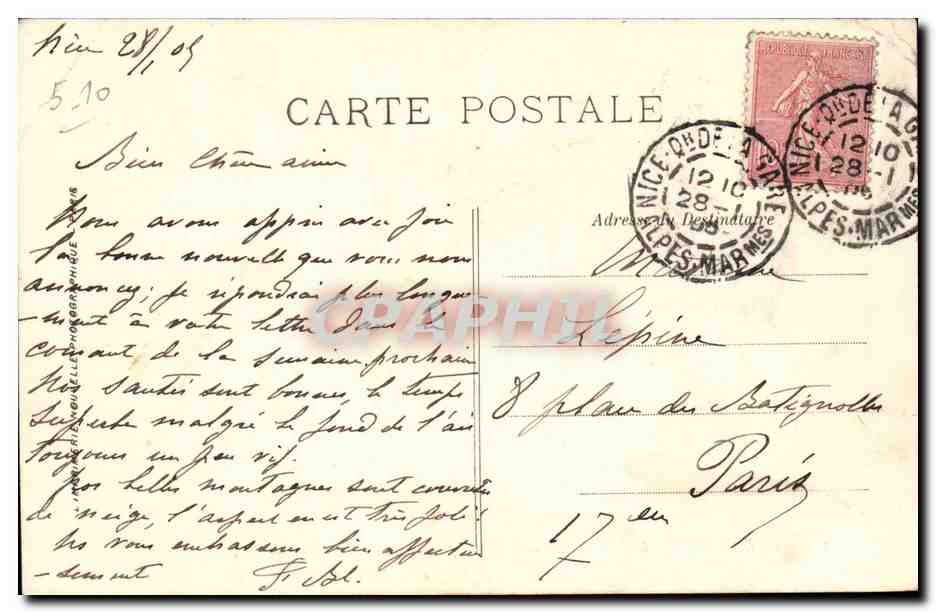 Nice 28/1 05
5-10
CARTE POSTALE
REPUBLIQUE FRANÇAISE
NICE-QR DE LA GARE
12 10
28-1
05
ALPES-MARMES
NICE-QR DE LA GARE
12 10
28-1
05
ALPES-MARMES
Adresse du Destinataire
IMPRIMERIE NOUVELLE PHOTOGRAPHIQUE - PARIS
Bien Chère amie
Nous avons appris avec joie
la bonne nouvelle que vous nous
annoncez; je répondrai plus longue
-ment à votre lettre dans le
courant de la semaine prochaine
Nos santés sont bonnes, le temps
superbe malgré le fond de l'air
toujours un peu vif.
Nos belles montagnes sont couvertes
de neige, l'aspect en est très joli!
Ns vous embrassons bien affectueu
-sement
Madame
Lépine
8 place des Batignolles
Paris
17ème
CPAPHIL